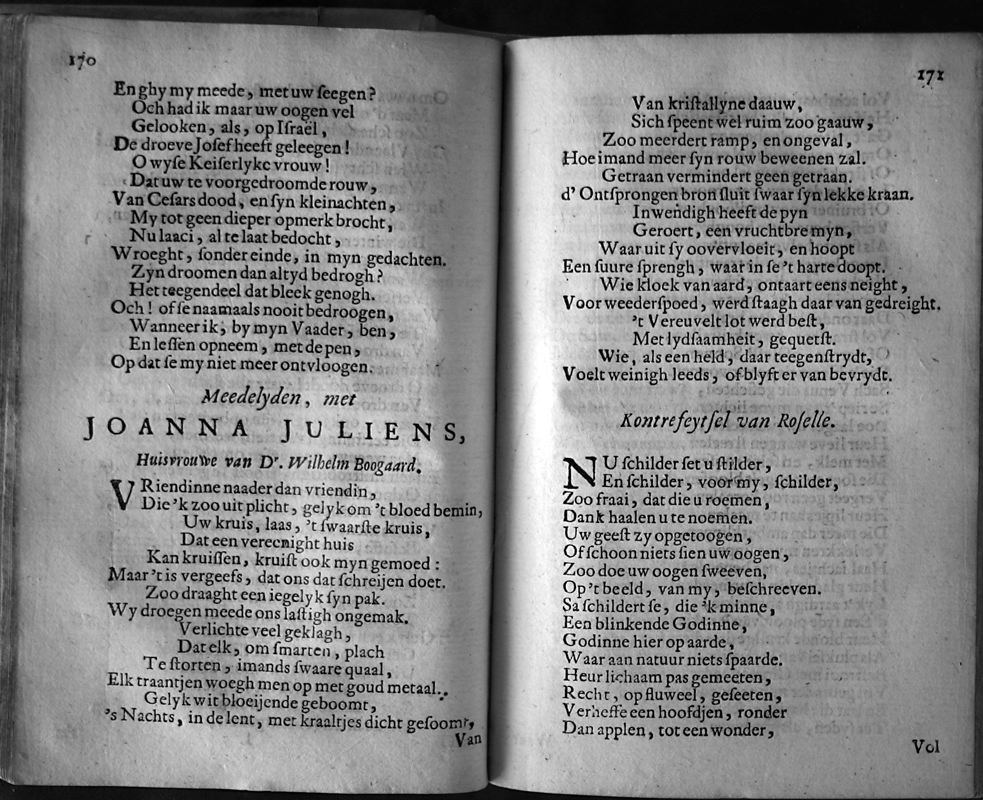 170
En ghy my meede, met uw ſeegen?
Och had ik maar uw oogen vel
Gelooken, als, op Iſraël,
De droeve Joſef heeft geleegen!
O wyſe Keiſerlyke vrouw!
Dat uw te voorgedroomde rouw,
Van Ceſars dood, en ſyn kleinachten,
My tot geen dieper opmerk brocht,
Nu laaci, al te laat bedocht,
Wroeght, ſonder einde, in myn gedachten.
Zyn droomen dan altyd bedrogh?
Het teegendeel dat bleek genogh.
Och! of ſe naamaals nooit bedroogen,
Wanneer ik, by myn Vaader, ben,
En leſſen opneem, met de pen,
Op dat ſe my niet meer ontvloogen.
Meedelyden, met
JOANNA JULIENS,
Huisvrouwe van Dr. Wilhelm Boogaard.
VRiendinne naader dan vriendin,
Die 'k zoo uit plicht, gelyk om 't bloed bemin,
Uw kruis, laas, 't ſwaarſte kruis,
Dat een vereenight huis
Kan kruiſſen, kruiſt ook myn gemoed:
Maar 't is vergeefs, dat ons dat ſchreijen doet.
Zoo draaght een iegelyk ſyn pak.
Wy droegen meede ons laſtigh ongemak.
Verlichte veel geklagh,
Dat elk, om ſmarten, plach
Te ſtorten, imands ſwaare quaal,
Elk traantjen woegh men op met goud metaal.
Gelyk wit bloeijende geboomt,
's Nachts, in de lent, met kraaltjes dicht geſoomt,
Van
171
Van kriſtallyne daauw,
Sich ſpeent wel ruim zoo gaauw,
Zoo meerdert ramp, en ongeval,
Hoe imand meer ſyn rouw beweenen zal.
Getraan vermindert geen getraan.
d' Ontſprongen bron ſluit ſwaar ſyn lekke kraan.
Inwendigh heeft de pyn
Geroert, een vruchtbre myn,
Waar uit ſy oovervloeit, en hoopt
Een ſuure ſprengh, waar in ſe 't harte doopt.
Wie kloek van aard, ontaart eens neight,
Voor weederſpoed, werd ſtaagh daar van gedreight.
't Vereuvelt lot werd beſt,
Met lydſaamheit, gequetſt.
Wie, als een held, daar teegenſtrydt,
Voelt weinigh leeds, of blyft er van bevrydt.
Kontrefeytſel van Roſelle.
NU ſchilder ſet u ſtilder,
En ſchilder, voor my, ſchilder,
Zoo fraai, dat die u roemen,
Dank haalen u te noemen.
Uw geeſt zy opgetoogen,
Of ſchoon niets ſien uw oogen,
Zoo doe uw oogen ſweeven,
Op 't beeld, van my, beſchreeven.
Sa ſchildert ſe, die 'k minne,
Een blinkende Godinne,
Godinne hier op aarde,
Waar aan natuur niets ſpaarde.
Heur lichaam pas gemeeten,
Recht, op fluweel, geſeeten,
Verheffe een hoofdjen, ronder
Dan applen, tot een wonder,
Vol